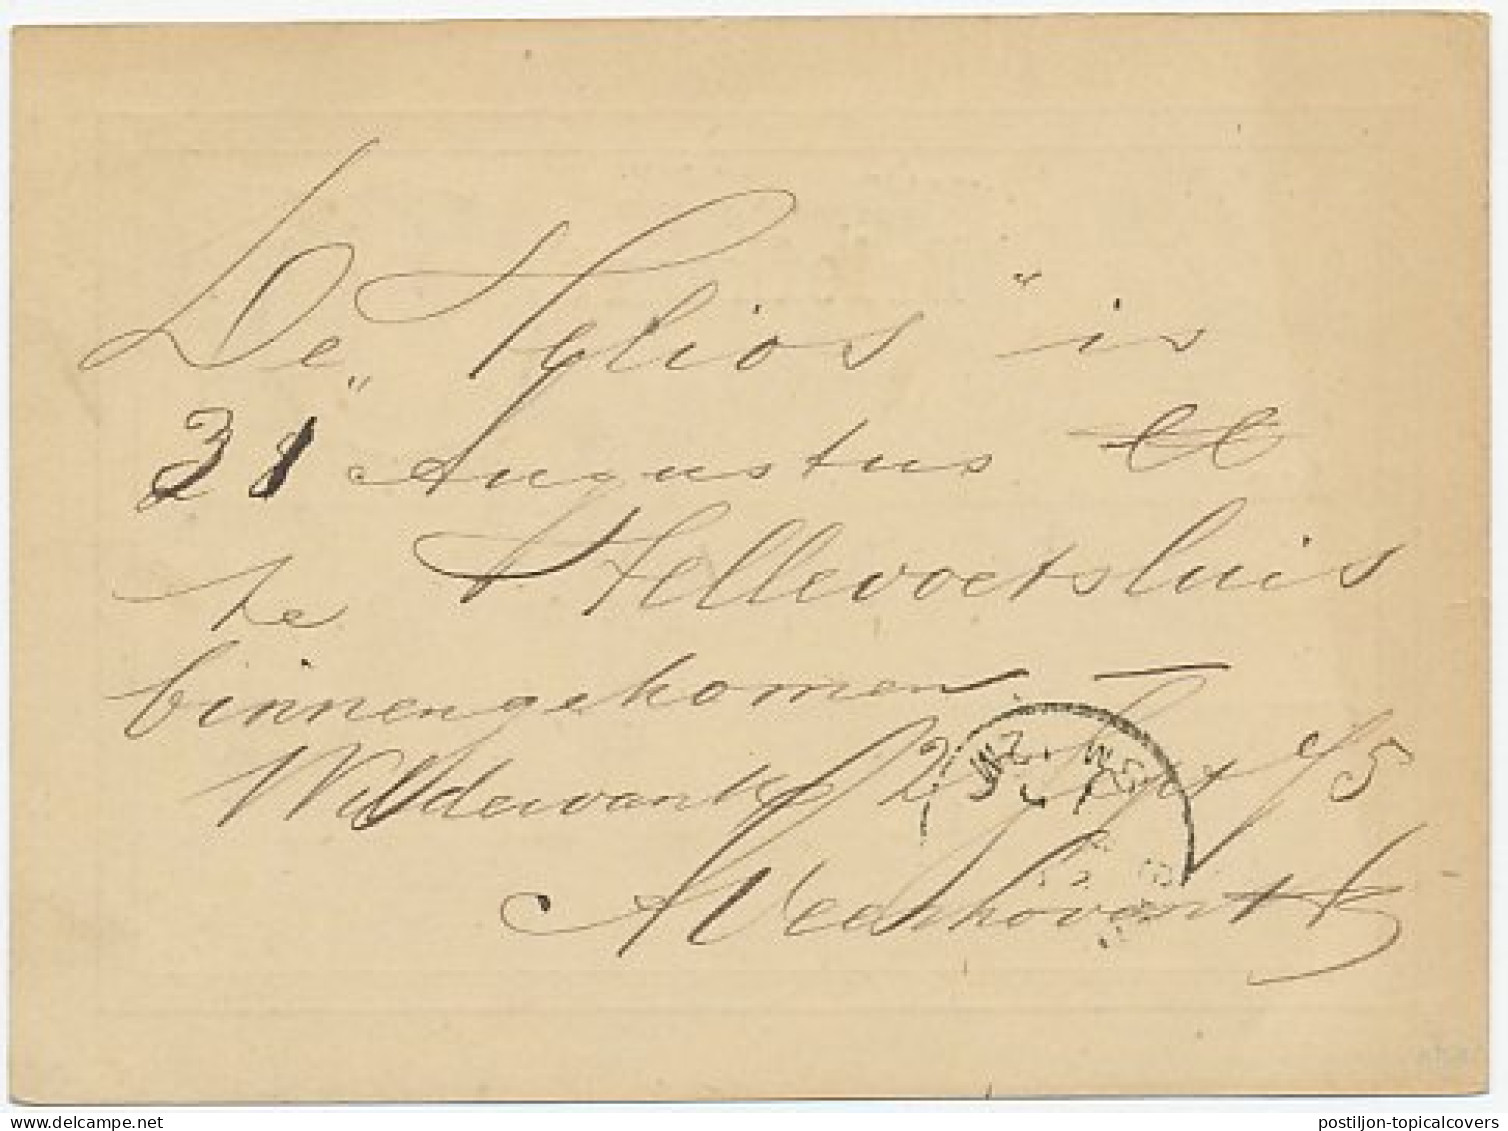 De „Helios" is
31 Augustus ll
te Hellevoetsluis
binnengekomen —
Wildervank 2 Sept /75
postiljon-topicalcovers